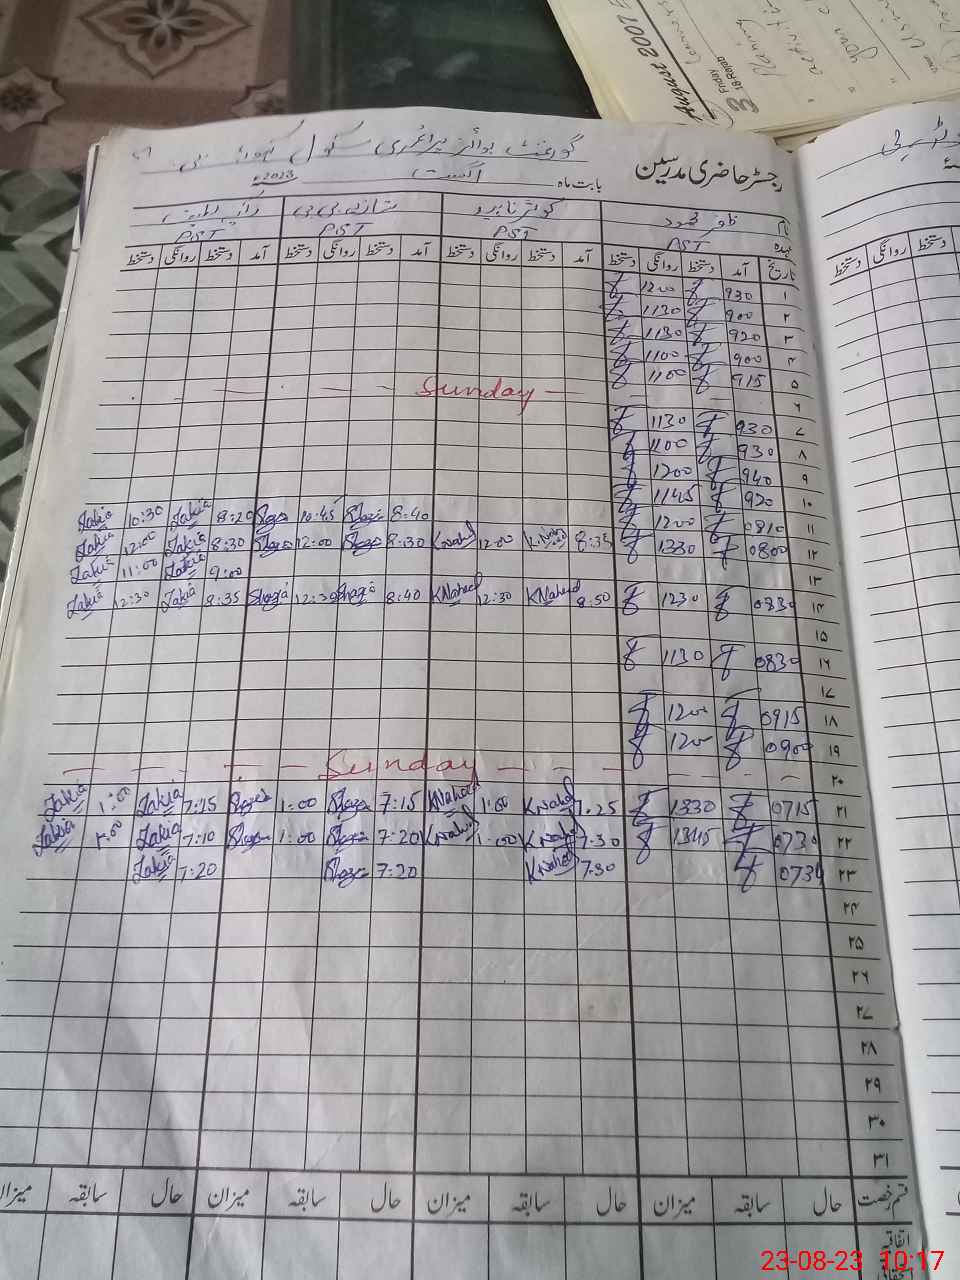 August 2007
3 Friday
18 Rajab
Planing
activity
your
Using
رجسٹر حاضری مدرسین
گورنمنٹ بوائز پرائمری سکول
بابت ماہ اگست 2023ء
نام ظفر محمود کوثر ناہید شازیہ بی بی ذاکیہ لطیف
عہدہ PST PST PST PST
تاریخ آمد دستخط روانگی دستخط آمد دستخط روانگی دستخط آمد دستخط روانگی دستخط آمد دستخط روانگی دستخط
۱ 930 1200
۲ 900 1130
۳ 920 1130
۴ 900 1100
۵ 915 1100
۶ Sunday
۷ 930 1130
۸ 930 1100
۹ 940 1200
۱۰ 920 1145
۱۱ 0810 1200 8:40 Shazia 10:45 Shazia 8:20 Zakia 10:30 Zakia
۱۲ 0800 1330 8:35 K.Nahed 12:00 K.Nahed 8:30 Shazia 12:00 Shazia 8:30 Zakia 12:00 Zakia
۱۳ 9:00 Zakia 11:00 Zakia
۱۴ 0830 1230 8:50 KNahed 12:30 KNahed 8:40 Shazia 12:30 Shazia 8:35 Zakia 12:30 Zakia
۱۵
۱۶ 0830 1130
۱۷
۱۸ 0915 1200
۱۹ 0900 1200
۲۰ Sunday
۲۱ 0715 1330 7:25 KNahed 1:00 KNahed 7:15 Shazia 1:00 Shazia 7:15 Zakia 1:00 Zakia
۲۲ 0730 1345 7:30 KNahed 1:00 KNahed 7:20 Shazia 1:00 Shazia 7:10 Zakia 1:00 Zakia
۲۳ 0730 7:30 KNahed 7:20 Shazia 7:20 Zakia
۲۴
۲۵
۲۶
۲۷
۲۸
۲۹
۳۰
۳۱
قسم رخصت حال سابقہ میزان حال سابقہ میزان حال سابقہ میزان حال سابقہ میزان
اتفاقیہ
دستخط روانگی دستخط
23-08-23 10:17